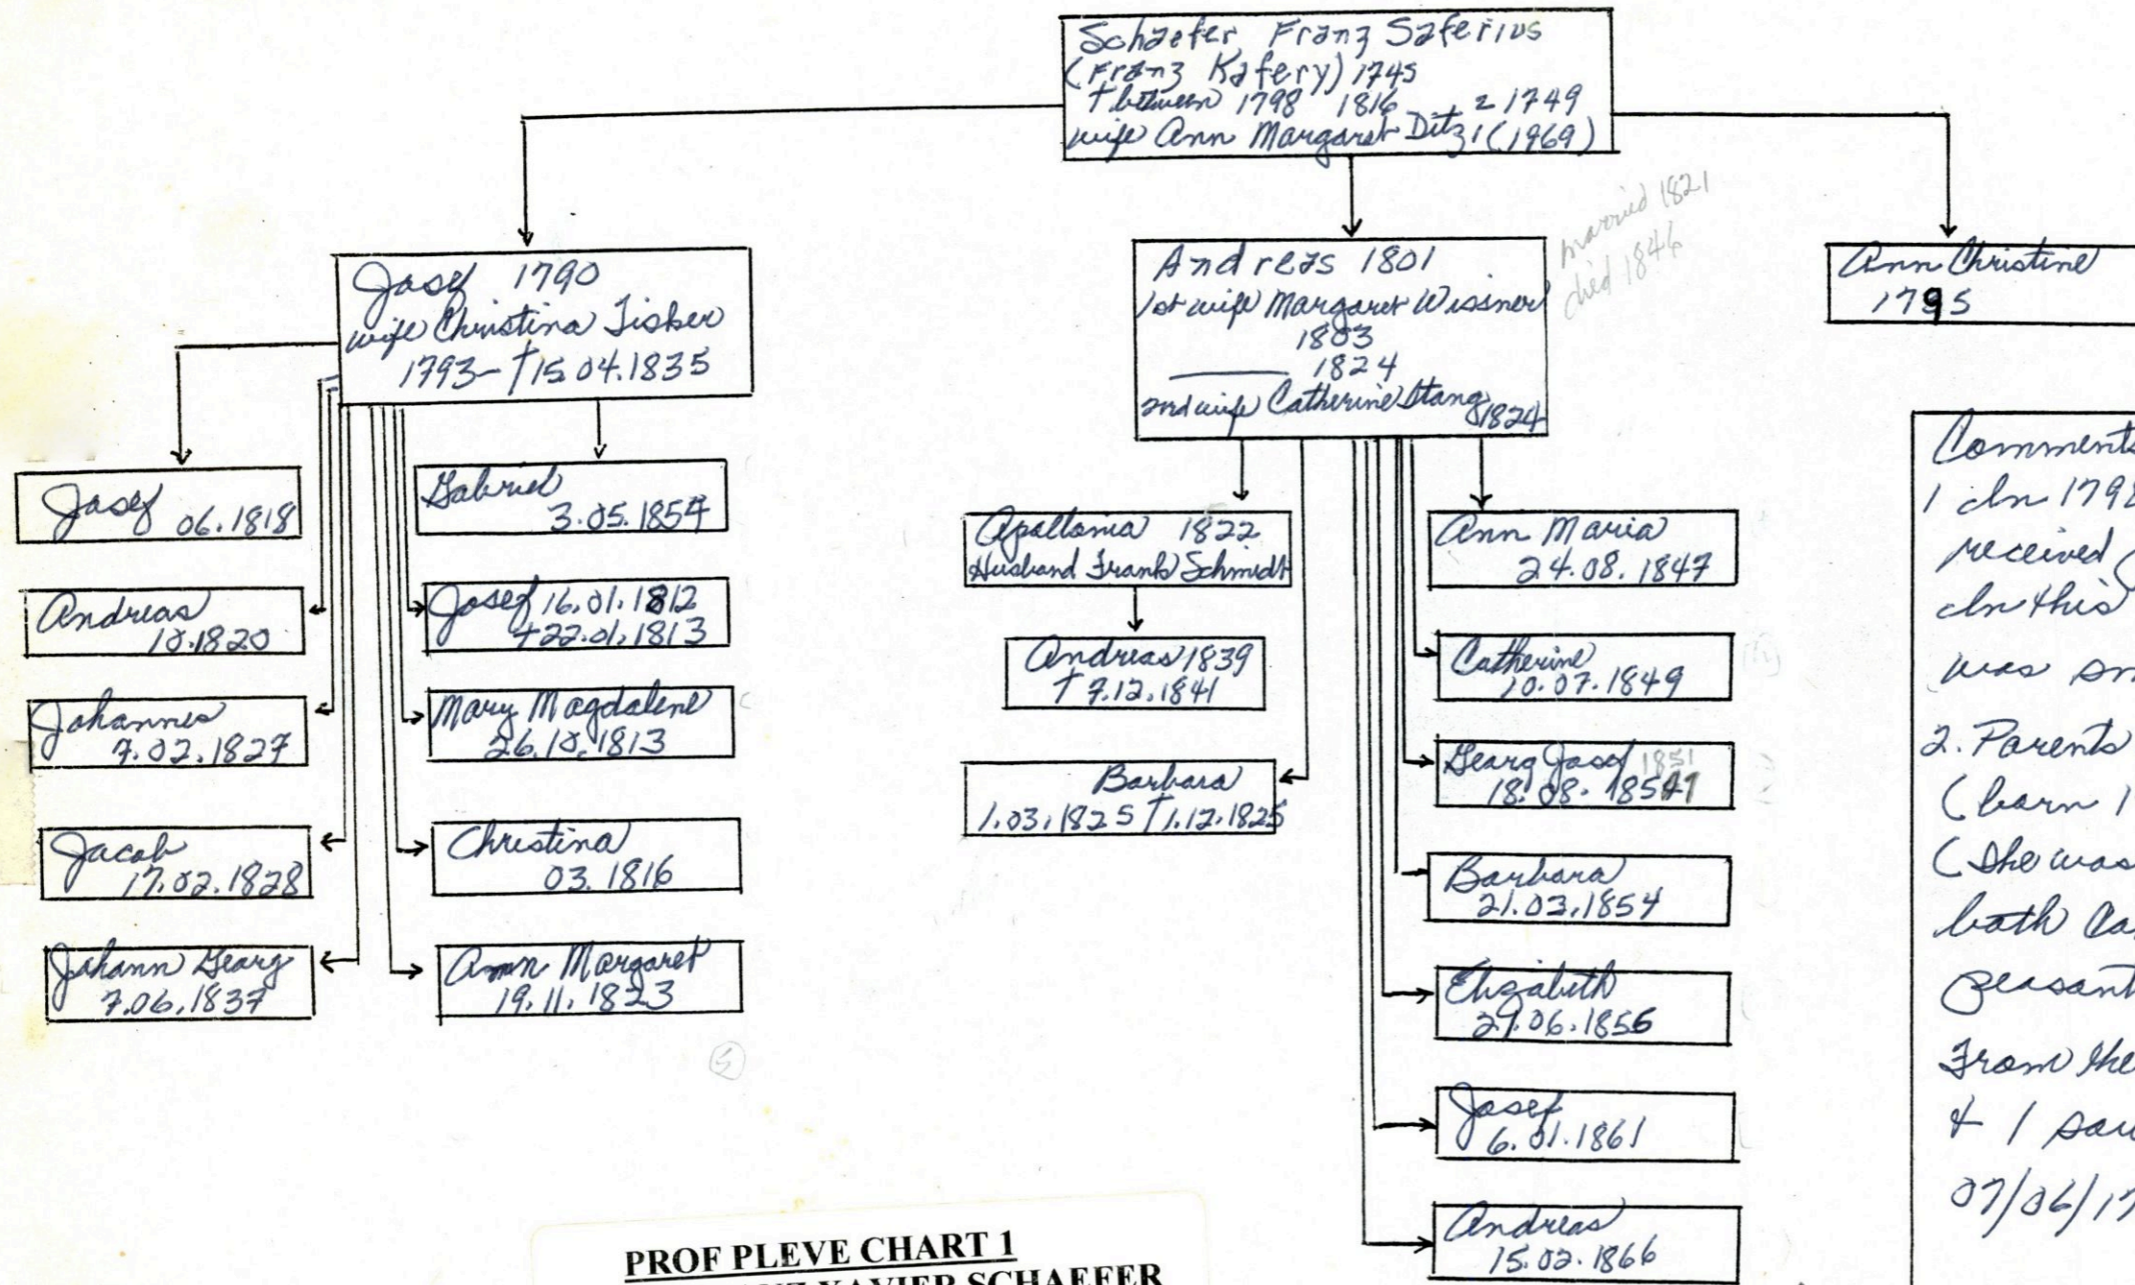 Schaefer Franz Saferius
(Franz Kafery) 1745
† between 1798 1816 2 1749
wife Ann Margaret Ditz 1 (1969)
married 1821
died 1846
Josef 1790
wife Christina Fisher
1793 - † 15.04.1835
Andreas 1801
1st wife Margaret Wissner
1803
1824
2nd wife Catherine Stang
1824
Ann Christine
1795
Josef 06.1818
Andreas
10.1820
Johannes
7.02.1827
Jacob
17.02.1828
Johann Georg
7.06.1837
Gabriel
3.05.1854
Josef 16.01.1812
+22.01.1813
Mary Magdalene
26.10.1813
Christina
03.1816
Ann Margaret
19.11.1823
5
Apollonia 1822
Husband Frank Schmidt
Andreas 1839
† 7.12.1841
Barbara
1.03.1825 † 1.12.1825
Ann Maria
24.08.1847
Catherine
10.07.1849
Georg Josef 1851
18.08.
Barbara
21.03.1854
Elizabeth
29.06.1856
Josef
6.01.1861
Andreas
15.02.1866
Comments
1 In 1798
received
In this
was
2. Parents
(born 1
(She was
both
peasant
From the
& 1
07/06/17
PROF PLEVE CHART 1
XAVIER SCHAEFER